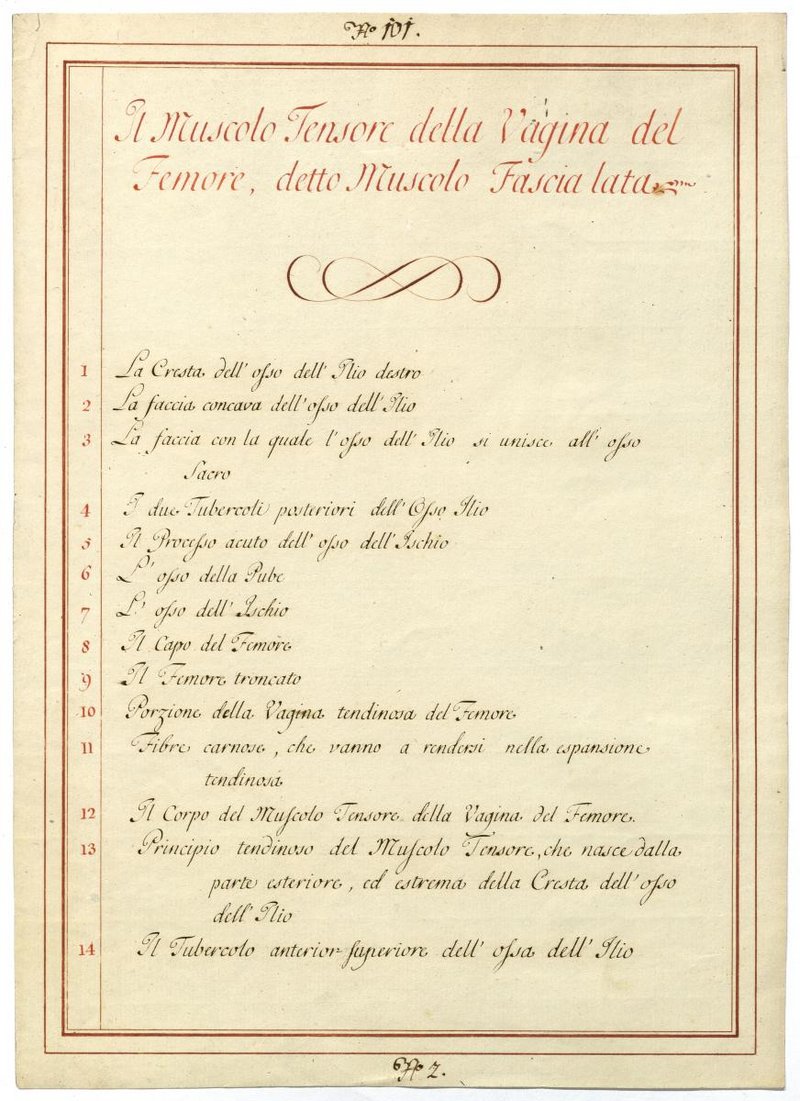 No 101.
Il Muscolo Tensore della Vagina del
Femore, detto Muscolo Fascia lata
1 La Cresta dell' osso dell' Ilio destro
2 La faccia concava dell' osso dell' Ilio
3 La faccia con la quale l' osso dell' Ilio si unisce all' osso
Sacro
4 I due Tubercoli posteriori dell' Osso Ilio
5 Il Processo acuto dell' osso dell' Ischio
6 L' osso della Pube
7 L' osso dell' Ischio
8 Il Capo del Femore
9 Il Femore troncato
10 Porzione della Vagina tendinosa del Femore
11 Fibre carnose, che vanno a rendersi nella espansione
tendinosa
12 Il Corpo del Muscolo Tensore della Vagina del Femore.
13 Principio tendinoso del Muscolo Tensore, che nasce dalla
parte esteriore, ed estrema della Cresta dell' osso
dell' Ilio
14 Il Tubercolo anterior superiore dell' ossa dell' Ilio
No 2.